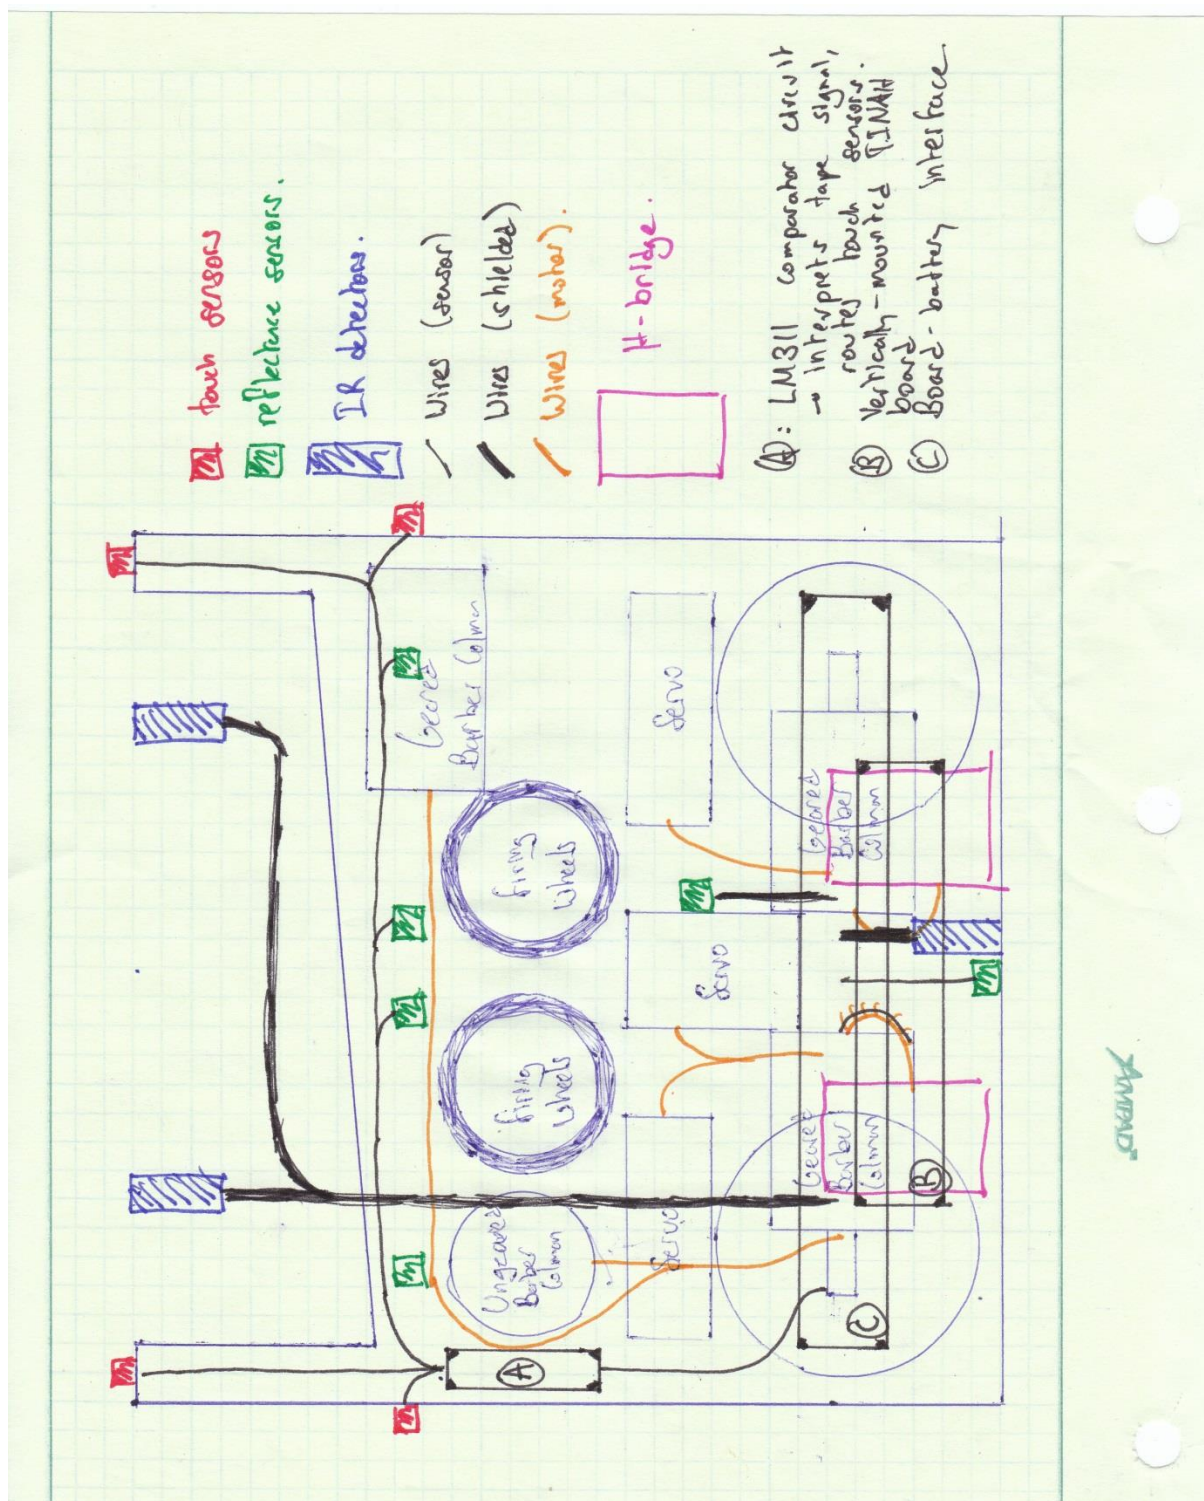 touch sensors
reflectance sensors.
IR detectors.
Wires (sensor)
Wires (shielded)
Wires (motor).
H-bridge.
(A): LM311 comparator circuit
→ interprets tape signal,
routes touch sensors.
(B) Vertically-mounted TINAH
board
(C) Board-battery interface.
Geared
Barber Colman
Firing
Wheels
Firing
Wheels
Ungeared
Barber
Colman
Servo
Servo
Servo
Geared
Barber
Colman
Geared
Barber
Colman
A
B
C
AMPAD